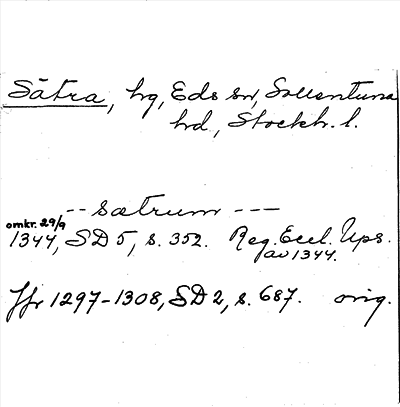 Sätra, hg, Eds sn, Sollentuna
hd, Stockh. l.
-- sætrum ---
omkr. 29/9
1344, SD 5, s. 352. Reg. Eccl. Ups.
av 1344.
Jfr 1297-1308, SD 2, s. 687. orig.